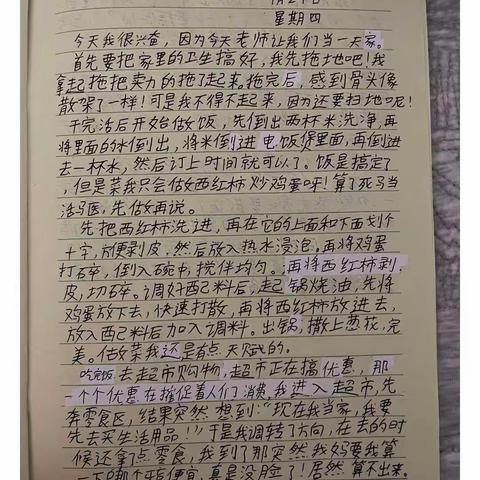 星期四
今天我很兴奋，因为今天老师让我们当一天家。
首先要把家里的卫生搞好，我先拖地吧！我
拿起拖把卖力的拖了起来，拖完后，感到骨头像
散架了一样！可是我不得不起来，因为还要扫地呢！
干完活后开始做饭，先倒出两杯米洗净，再
将里面的水倒出，将米倒进电饭煲里面，再倒进
去一杯水，然后订上时间就可以了。饭是搞定了
，但是菜我只会做西红柿炒鸡蛋呀！算了死马当
活马医，先做再说。
先把西红柿洗进，再在它的上面和下面划个
十字，方便剥皮，然后放入热水浸泡，再将鸡蛋
打碎，倒入碗中，搅伴均匀。再将西红柿剥
皮，切碎。调好配料后，起锅烧油，先将
鸡蛋放下去，快速打散，再将西红柿放进去，
放入配料后加入调料。出锅，撒上葱花，完
美。做菜我还是有点天赋的。
吃完饭去超市购物，超市正在搞优惠，那
一个个优惠在催促着人们了消费。我进入超市，先
奔零食区，结果突然想到“现在我当家，我要
先去买生活用品！”于是我调转了方向，在去的时
候还拿了点零食，我到了那突然我妈要我算
一下哪个更便宜，真是没脸了！居然算不出来。